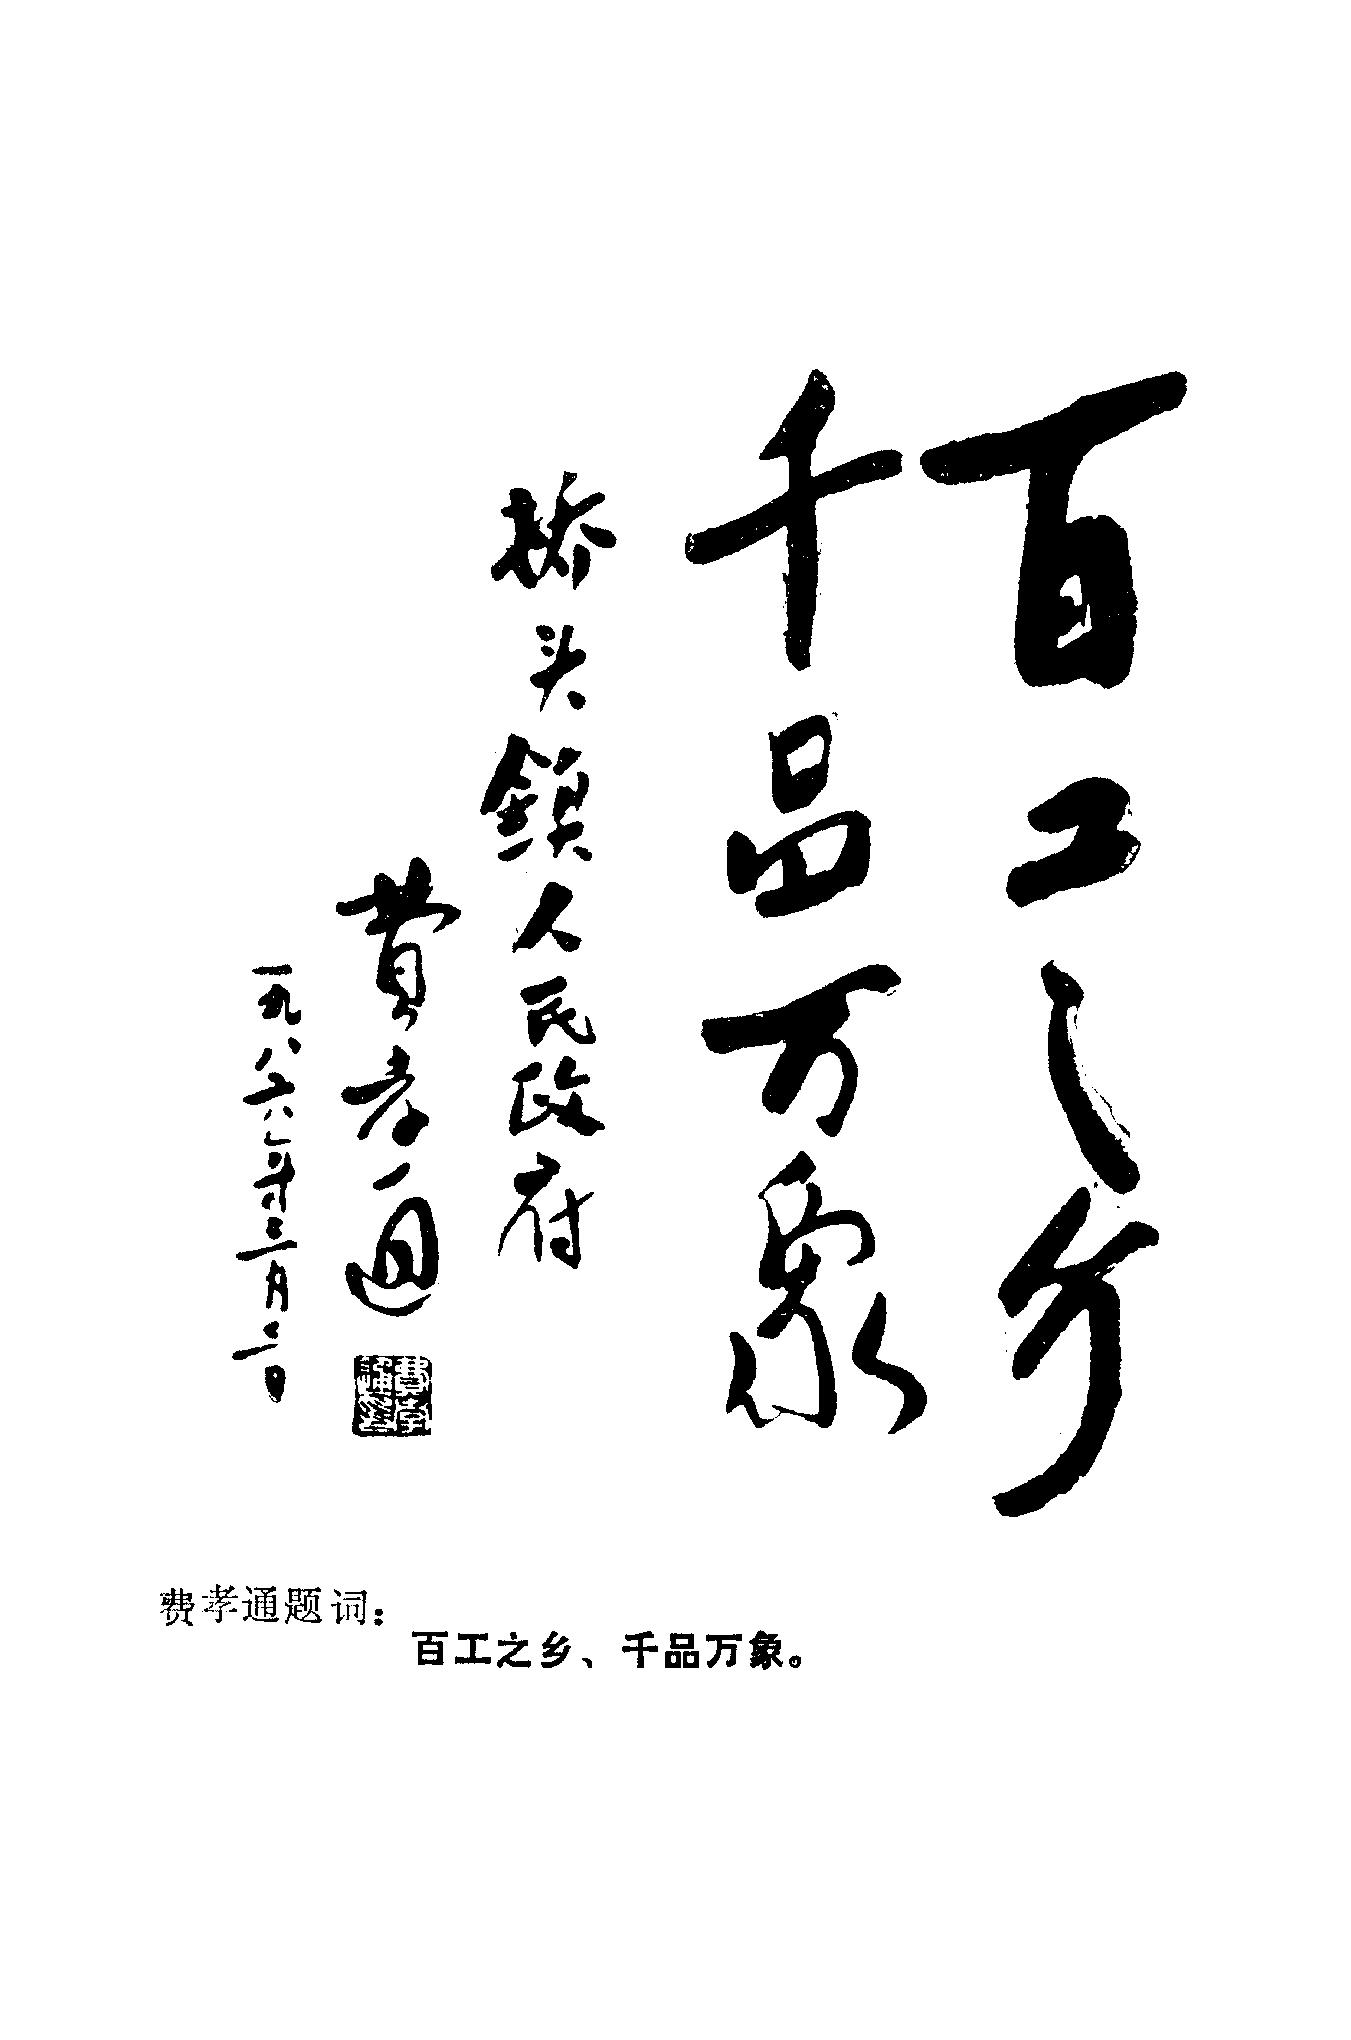 百工之乡
千品万象
桥头鎮人民政府
費孝通
一九八六年三月三日
費孝通
费孝通题词：
百工之乡、千品万象。